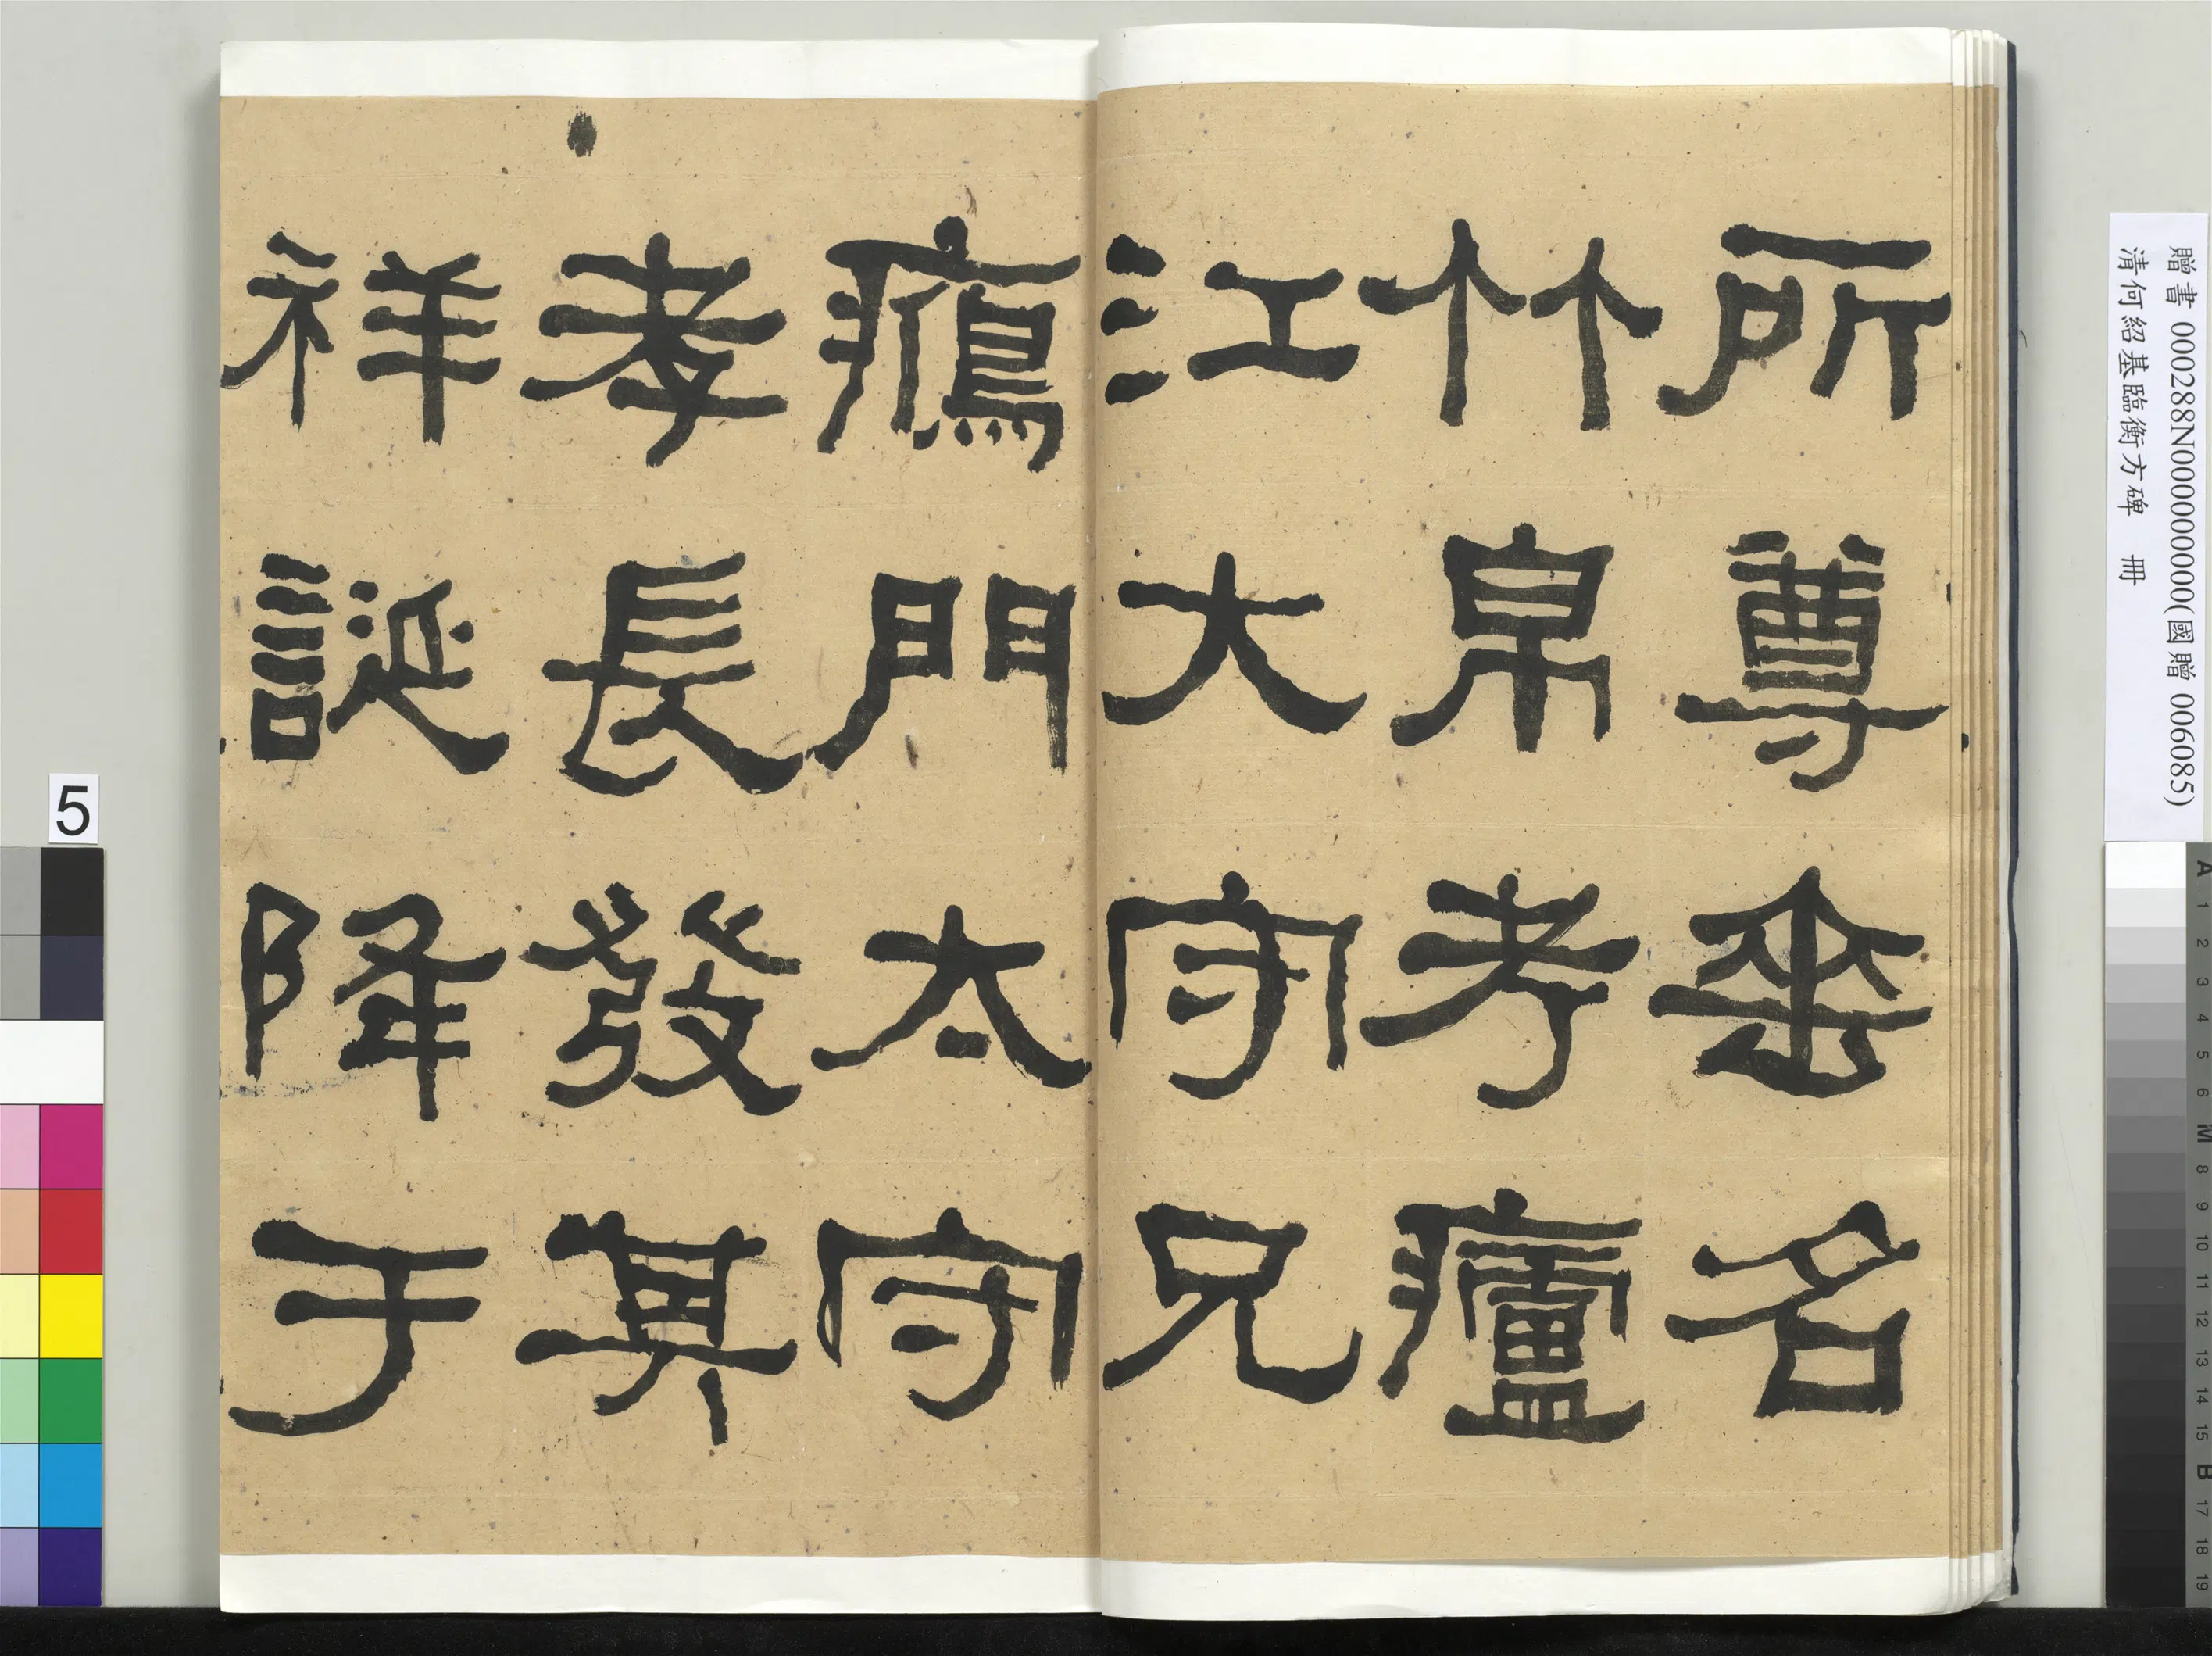 所尊垂名
竹帛考廬
江大守兄
鴈門太守
孝長發其
祥誕降于
贈書 000288N000000000(國贈 006085)
清何紹基臨衡方碑 冊
5
A 1 2 3 4 5 6 M 8 9 10 11 12 13 14 15 B 17 18 19